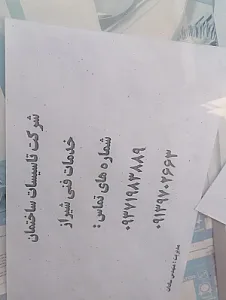 شرکت تاسیسات ساختمان
خدمات فنی شیراز
شماره های تماس :
۰۹۳۷۱۹۸۳۸۸۹
۰۹۱۳۹۷۰۲۶۶۳